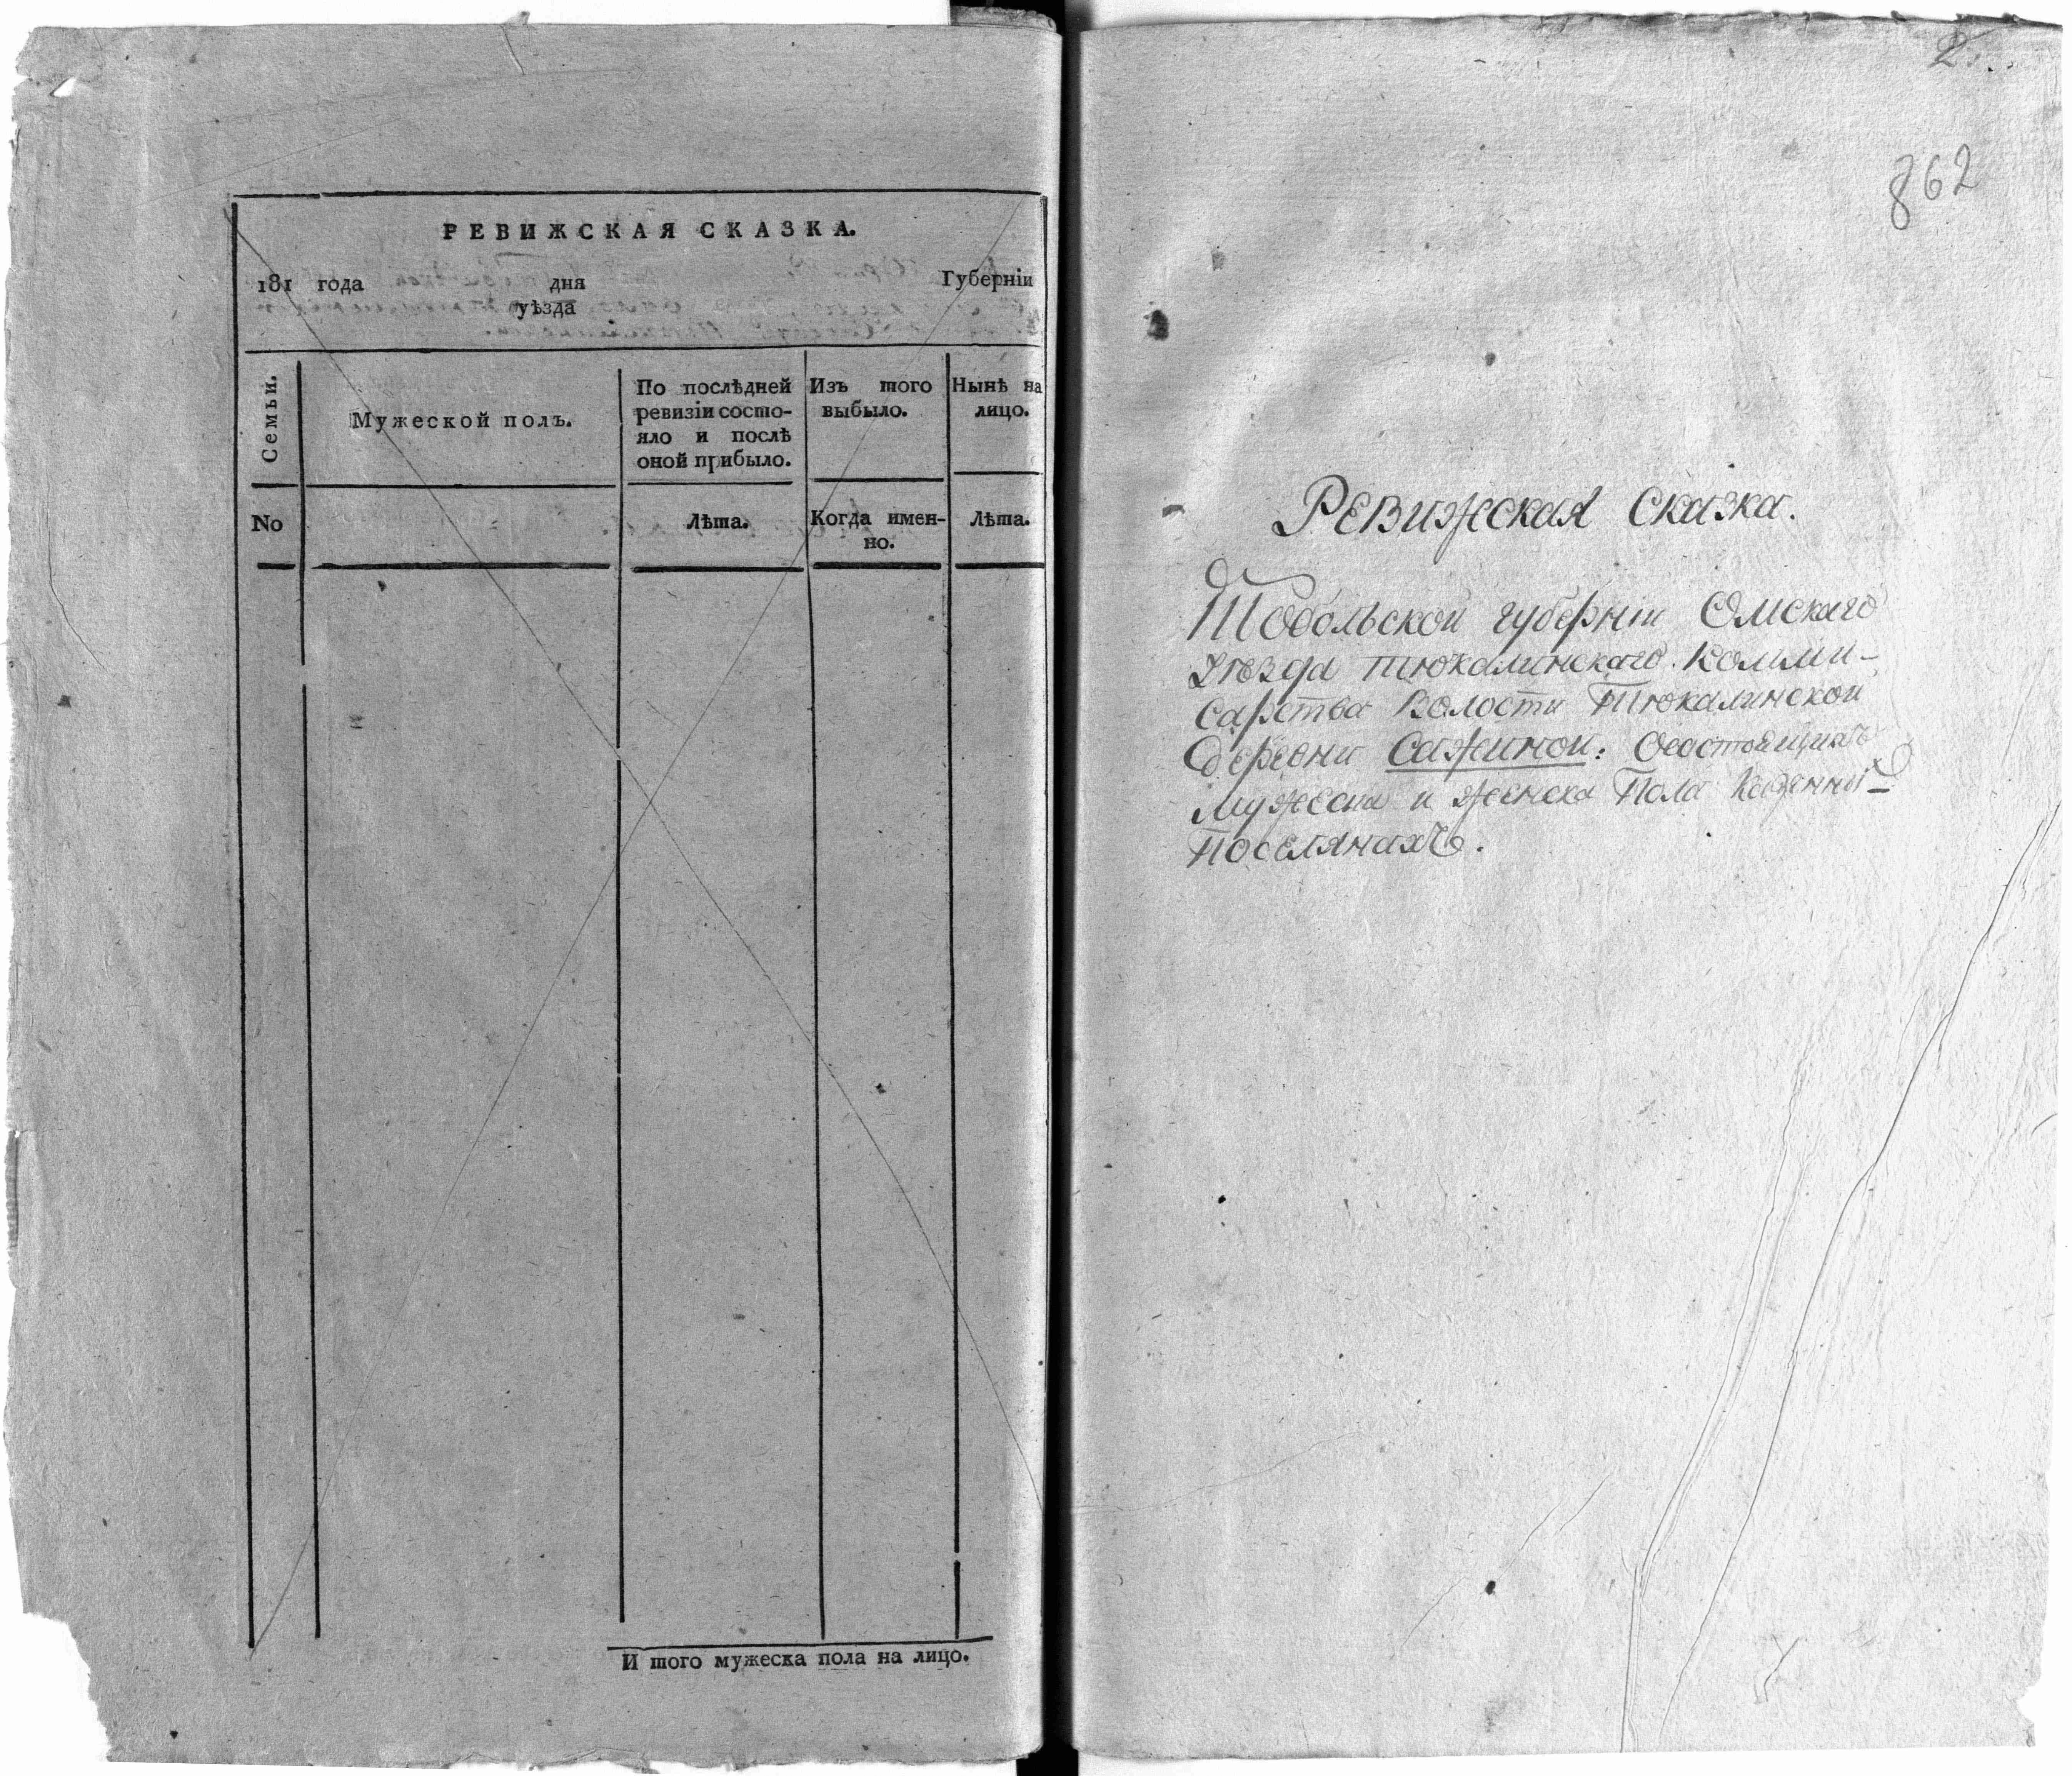 РЕВИЖСКАЯ СКАЗКА.
181 года дня Губерніи
уѣзда
Семьи.
Мужеской полъ.
По послѣдней
ревизіи состо-
яло и послѣ
оной прибыло.
Изъ того
выбыло.
Нынѣ на
лицо.
No
Лѣта.
Когда имен-
но.
Лѣта.
И того мужеска пола на лицо.
2.
862
Ревижская Сказка.
Тобольской губерніи Омскаго
уѣзда тюкалинскаго Комми-
сарства Волости Тюкалинской
деревни Сажиной: Осостоящихъ
мужеска и женска Пола Казенных
Поселянахъ.